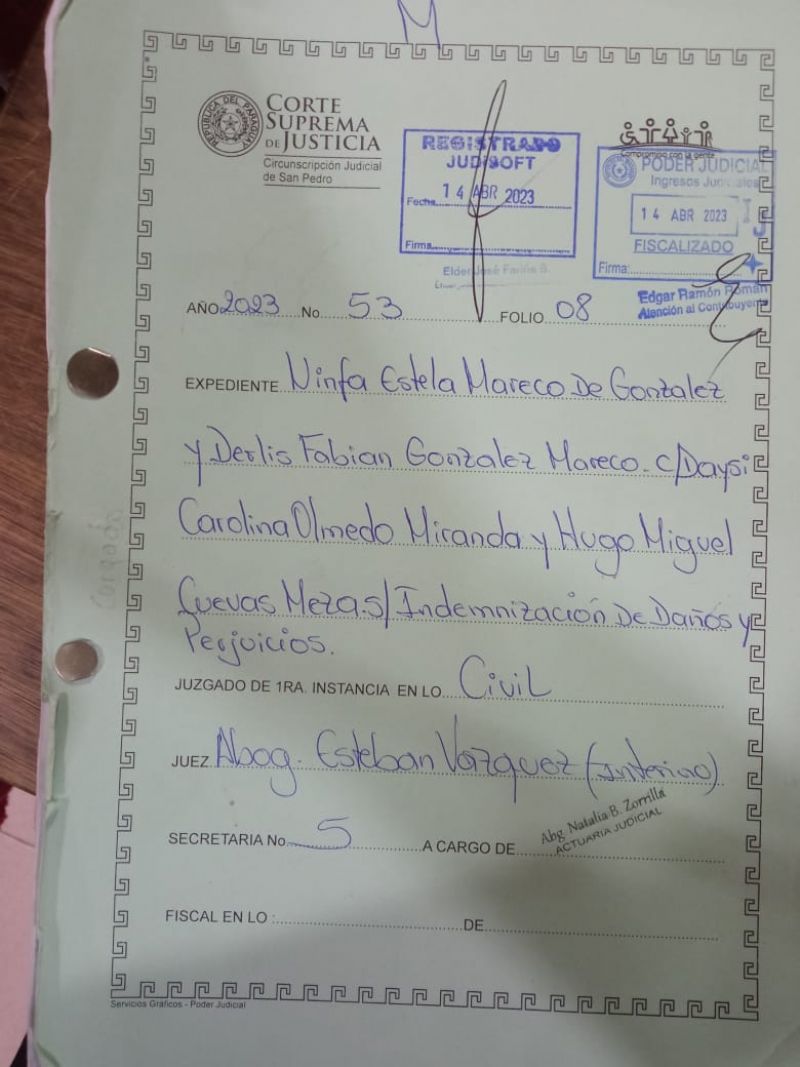 M
CORTE
SUPREMA
DE JUSTICIA
REPUBLICA DEL PARAGUAY
Circunscripción Judicial
de San Pedro
REGISTRADO
JUDISOFT
Fecha 14 ABR 2023
Firma
Compromiso con la gente
PODER JUDICIAL
Ingresos Judiciales
14 ABR 2023
FISCALIZADO
Firma:
Edgar Ramón Román
Atención al Contribuyente
AÑO 2023 No. 53 FOLIO 08
EXPEDIENTE Ninfa Estela Mareco De Gonzalez
y Derlis Fabian Gonzalez Mareco. c/Daysi
Carolina Olmedo Miranda y Hugo Miguel
Cuevas Meza.s/Indemnización De Daños y
Perjuicios.
JUZGADO DE 1RA. INSTANCIA EN LO Civil
JUEZ Abog. Esteban Vazquez (interino)
SECRETARIA No 5 A CARGO DE Abg. Natalia B. Zorrilla
ACTUARIA JUDICIAL
FISCAL EN LO : DE
Servicios Gráficos - Poder Judicial